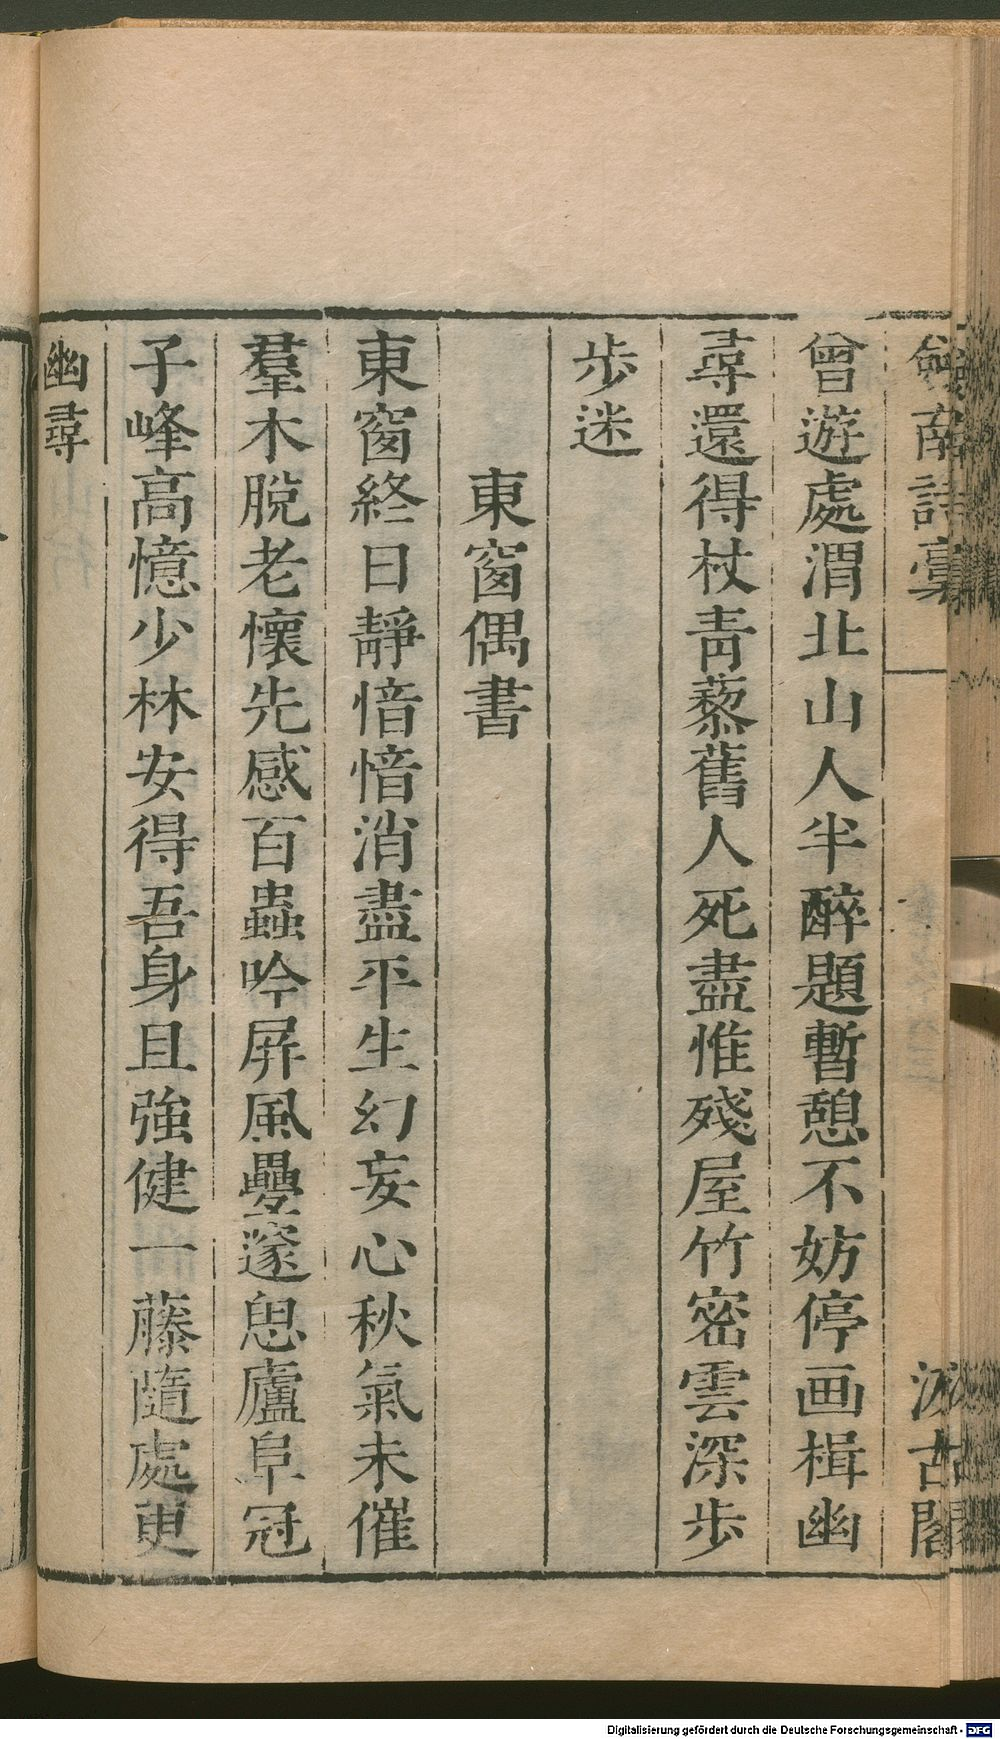 劒南詩稾
汲古閣
曾遊處渭北山人半醉題暫憩不妨停画楫幽
尋還得杖青藜舊人死盡惟殘屋竹密雲深步
步迷
東窗偶書
東窗終日靜愔愔消盡平生幻妄心秋氣未催
羣木脫老懷先感百蟲吟屏風疊邃思廬阜冠
子峰高憶少林安得吾身且強健一藤隨處更
幽尋
Digitalisierung gefördert durch die Deutsche Forschungsgemeinschaft - DFG